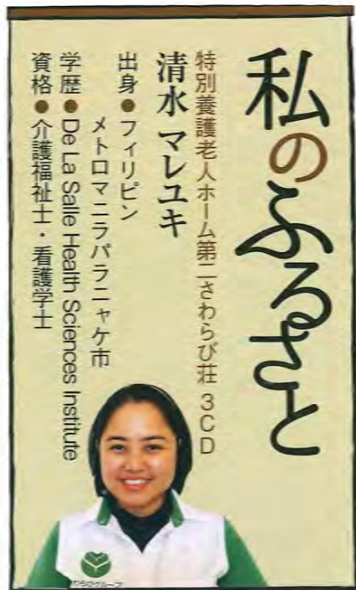 私のふるさと
特別養護老人ホーム第二さわらび荘 3CD
清水 マレユキ
出身●フィリピン
メトロマニラパラニャケ市
学歴●De La Salle Health Sciences Institute
資格●介護福祉士・看護学士
わらびグループ